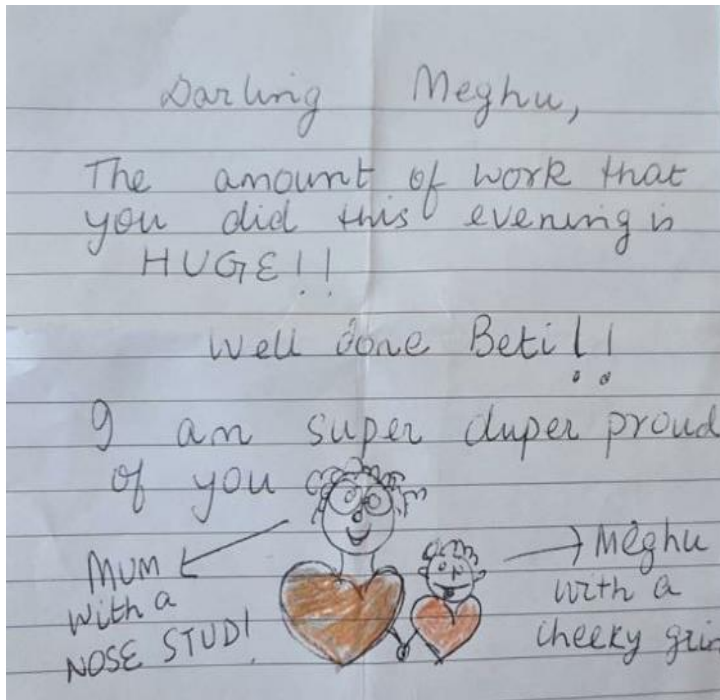 Darling Meghu,
The amount of work that
you did this evening is
HUGE!!
Well done Beti!!
I am super duper proud
of you
MUM
with a
NOSE STUD!
Meghu
with a
cheeky grin